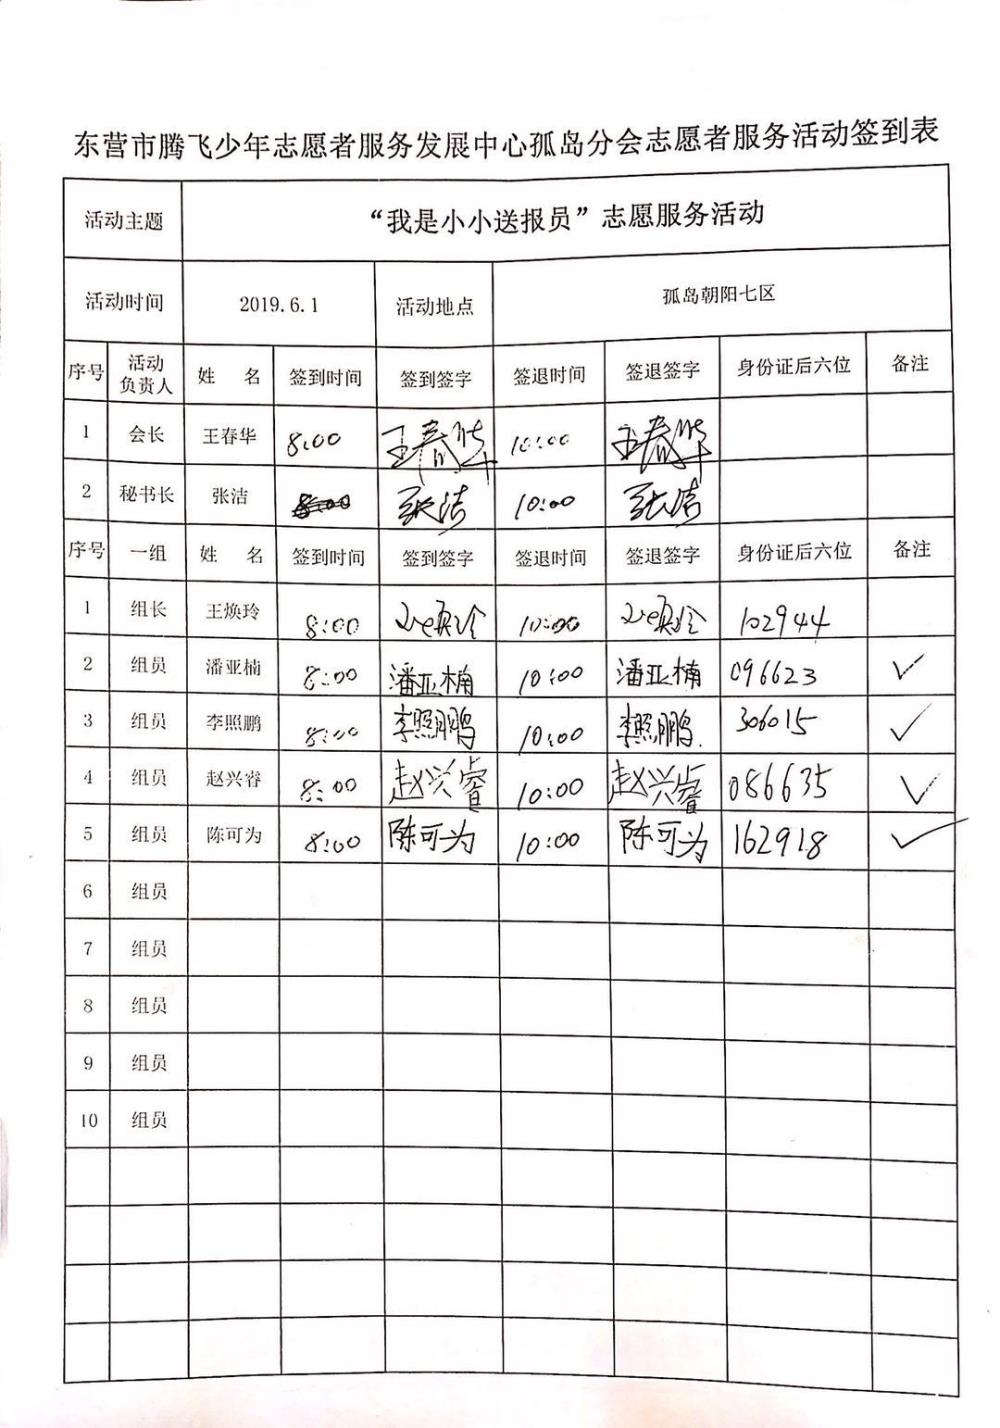 东营市腾飞少年志愿者服务发展中心孤岛分会志愿者服务活动签到表
活动主题 “我是小小送报员”志愿服务活动
活动时间 2019.6.1 活动地点 孤岛朝阳七区
序号 活动负责人 姓 名 签到时间 签到签字 签退时间 签退签字 身份证后六位 备注
1 会长 王春华 8:00 王春华 10:00 王春华
2 秘书长 张洁 8:00 张洁 10:00 张洁
序号 一组 姓 名 签到时间 签到签字 签退时间 签退签字 身份证后六位 备注
1 组长 王焕玲 8:00 王焕玲 10:00 王焕玲 102944
2 组员 潘亚楠 8:00 潘亚楠 10:00 潘亚楠 096623 ✓
3 组员 李照鹏 8:00 李照鹏 10:00 李照鹏. 306015 ✓
4 组员 赵兴睿 8:00 赵兴睿 10:00 赵兴睿 086635 ✓
5 组员 陈可为 8:00 陈可为 10:00 陈可为 162918 ✓
6 组员
7 组员
8 组员
9 组员
10 组员